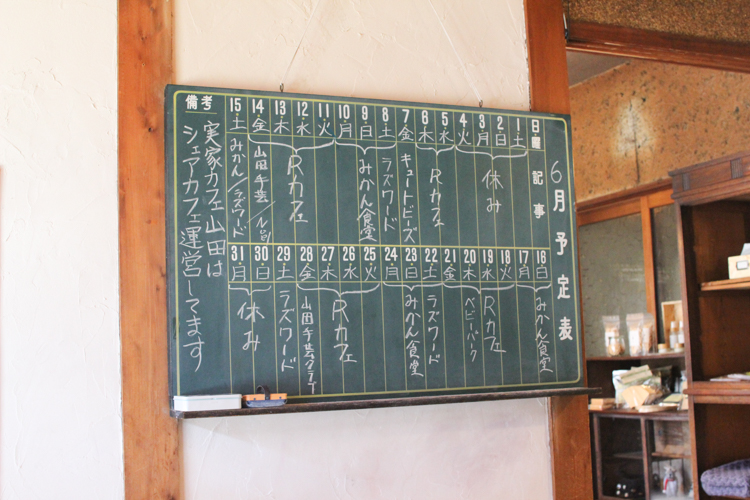 6月予定表
日曜 記事
1 土
2 日
3 月
4 火
休み
5 水
6 木
Rカフェ
7 金
キュートビーズ
8 土
ラズワード
9 日
10 月
みかん食堂
11 火
12 水
13 木
Rカフェ
14 金
山田手芸/
15 土
みかん/ラズワード
16 日
みかん食堂
17 月
18 火
19 水
Rカフェ
20 木
ベビーパーク
21 金
22 土
ラズワード
23 日
みかん食堂
24 月
25 火
26 水
27 木
Rカフェ
28 金
山田手芸クラブ
29 土
ラズワード
30 日
31 月
休み
備考
実家カフェ山田は
シェアカフェ運営してます